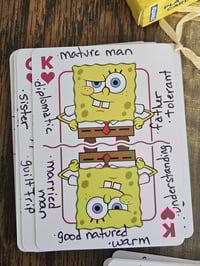 mature man
K
diplomatic
father
tolerant
sister
guilt trip
married
man
understanding
good natured
warm
K